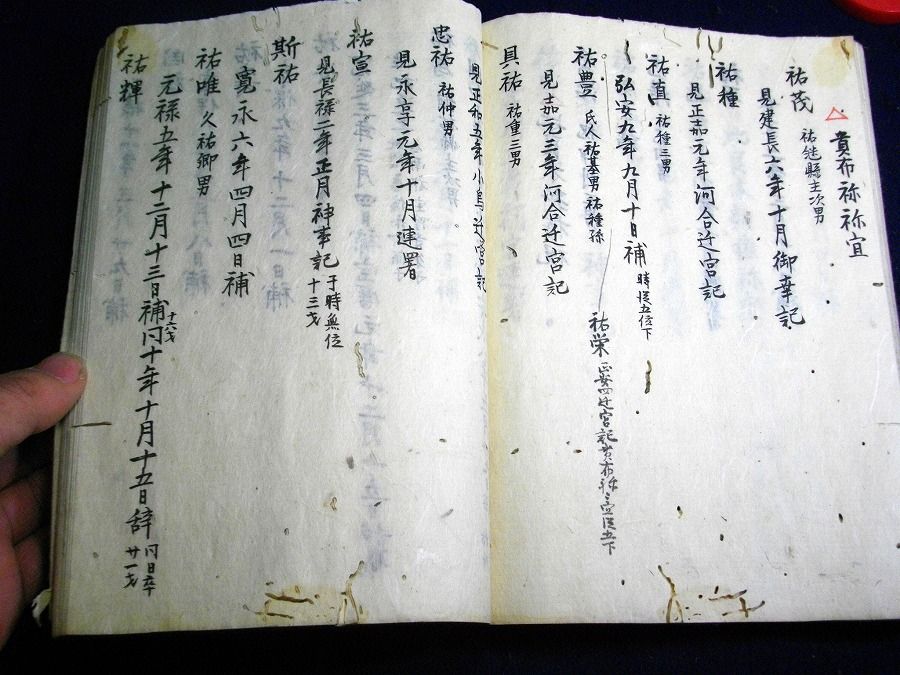 貴布祢祢宜
祐茂 祐継縣主次男
見建長六年十月御幸記
祐種
見正嘉元年河合迁宮記
祐直 祐種三男
弘安九年九月十日補 時従五位下
祐栄 正安四迁宮記貴布祢祢宜従五下
祐豊 氏人祐基男祐種孫
見嘉元三年河合迁宮記
具祐 祐重三男
見正和五年小烏迁宮記
忠祐 祐仲男
見永享元年十月連署
祐宣
見長禄二年正月神事記 于時無位十三才
斯祐
寛永六年四月四日補
祐唯 久祐卿男
元禄五年十二月十三日補十六才同十年十月十五日辞 同日卒廿一才
祐輝